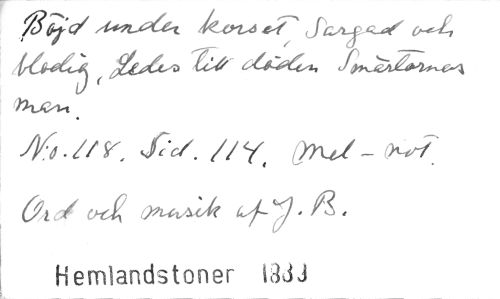 Böjd under korset, Sargad och
blodig, Ledes till döden Smärtornas
man.
No. 118. Sid. 114. Mel-not.
Ord och musik af J. B.
Hemlandstoner 1833